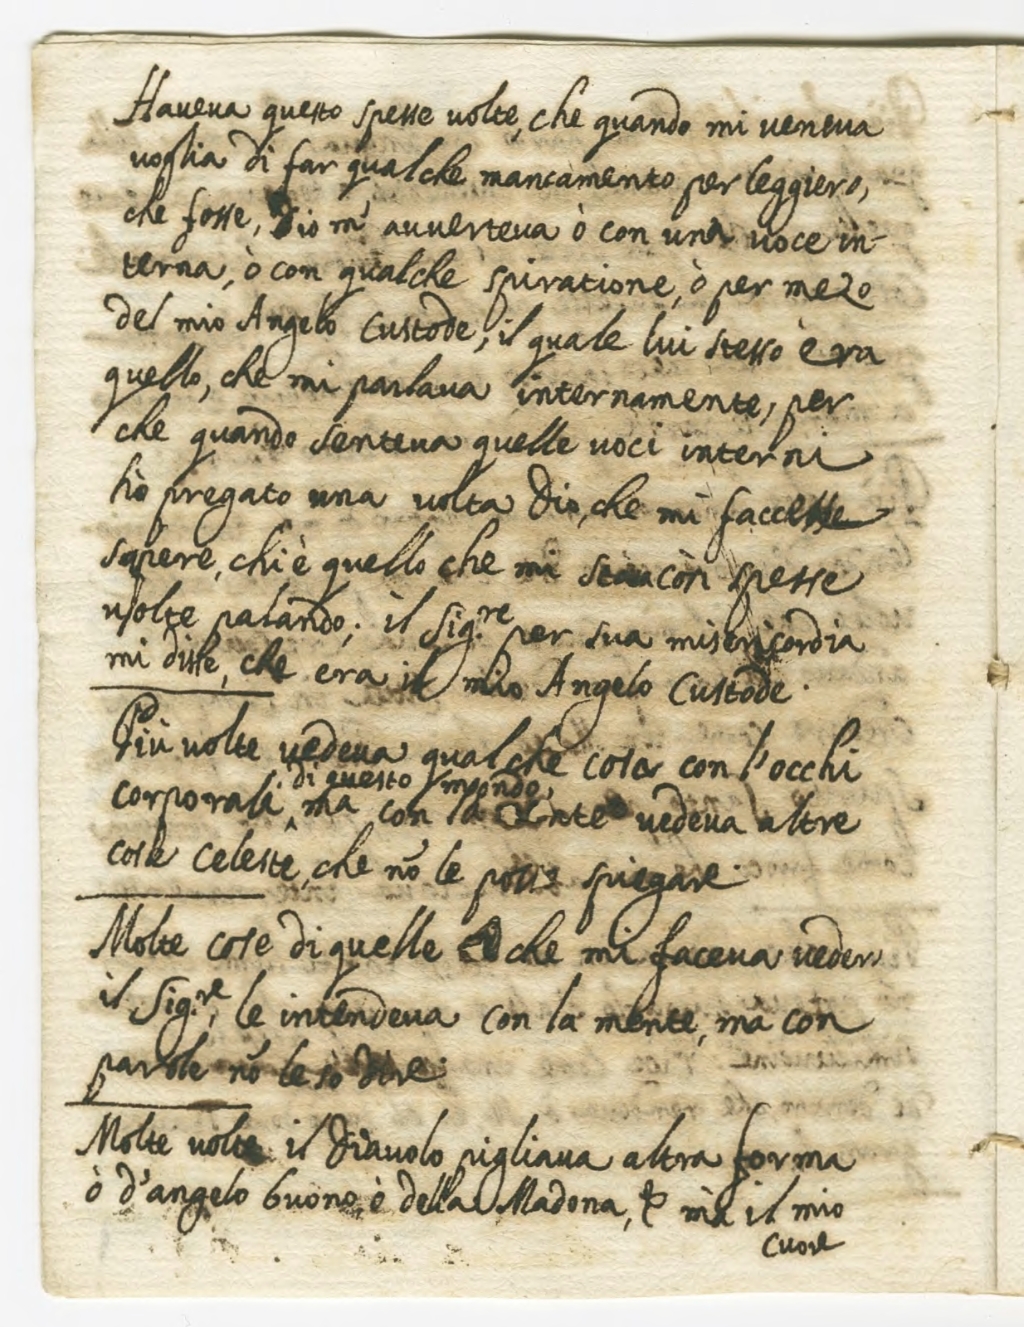 Haueua questo spesse uolte, che quando mi ueneua
uoglia di far qualche mancamento per leggiero,
che fosse, Dio m' auuerteua ò con una uoce in-
terna, ò con qualche spiratione, ò per mezo
del mio Angelo Custode, il quale lui stesso è era
quello, che mi parlaua internamente, per
che quando senteua quelle uoci interni
hò pregato una uolta Dio, che mi facesse
sapere, chi è quello che mi còn spesse
uolte palando; il Sig.re per sua misericordia
mi disse, che era il mio Angelo Custode.
Più uolte uedeua qualche cosa con l'occhi
di questo mondo,
corporali, ma con la uedeua altre
cose Celeste, che nõ le posso spiegare.
Molte cose di quelle che mi faceua ueder
il Sig.re, le intendeua con la mente, ma con
parole nõ le sò dire.
Molte uolte il Diauolo pigliaua altra forma
ò d'angelo buono, è della Madona, & mà il mio
cuore